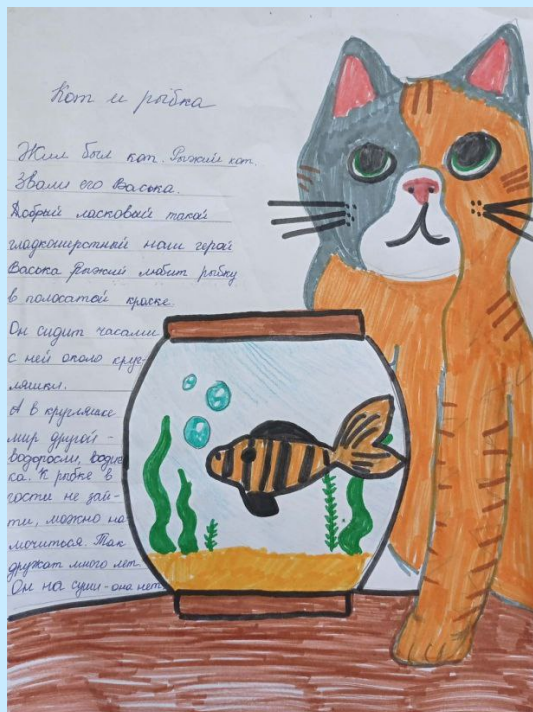 Кот и рыбка
Жил был кот. Рыжий кот.
Звали его Васька.
Добрый ласковый такой
гладкошерстный наш герой
Васька Рыжий любит рыбку
в полосатой краске.
Он сидит часами
с ней около круг-
ляшки.
А в кругляшке
мир другой -
водоросли, водич
ка. К рыбке в
гости не зай-
ти, можно на
мочиться. Так
дружат много лет
Он на суши - она нет